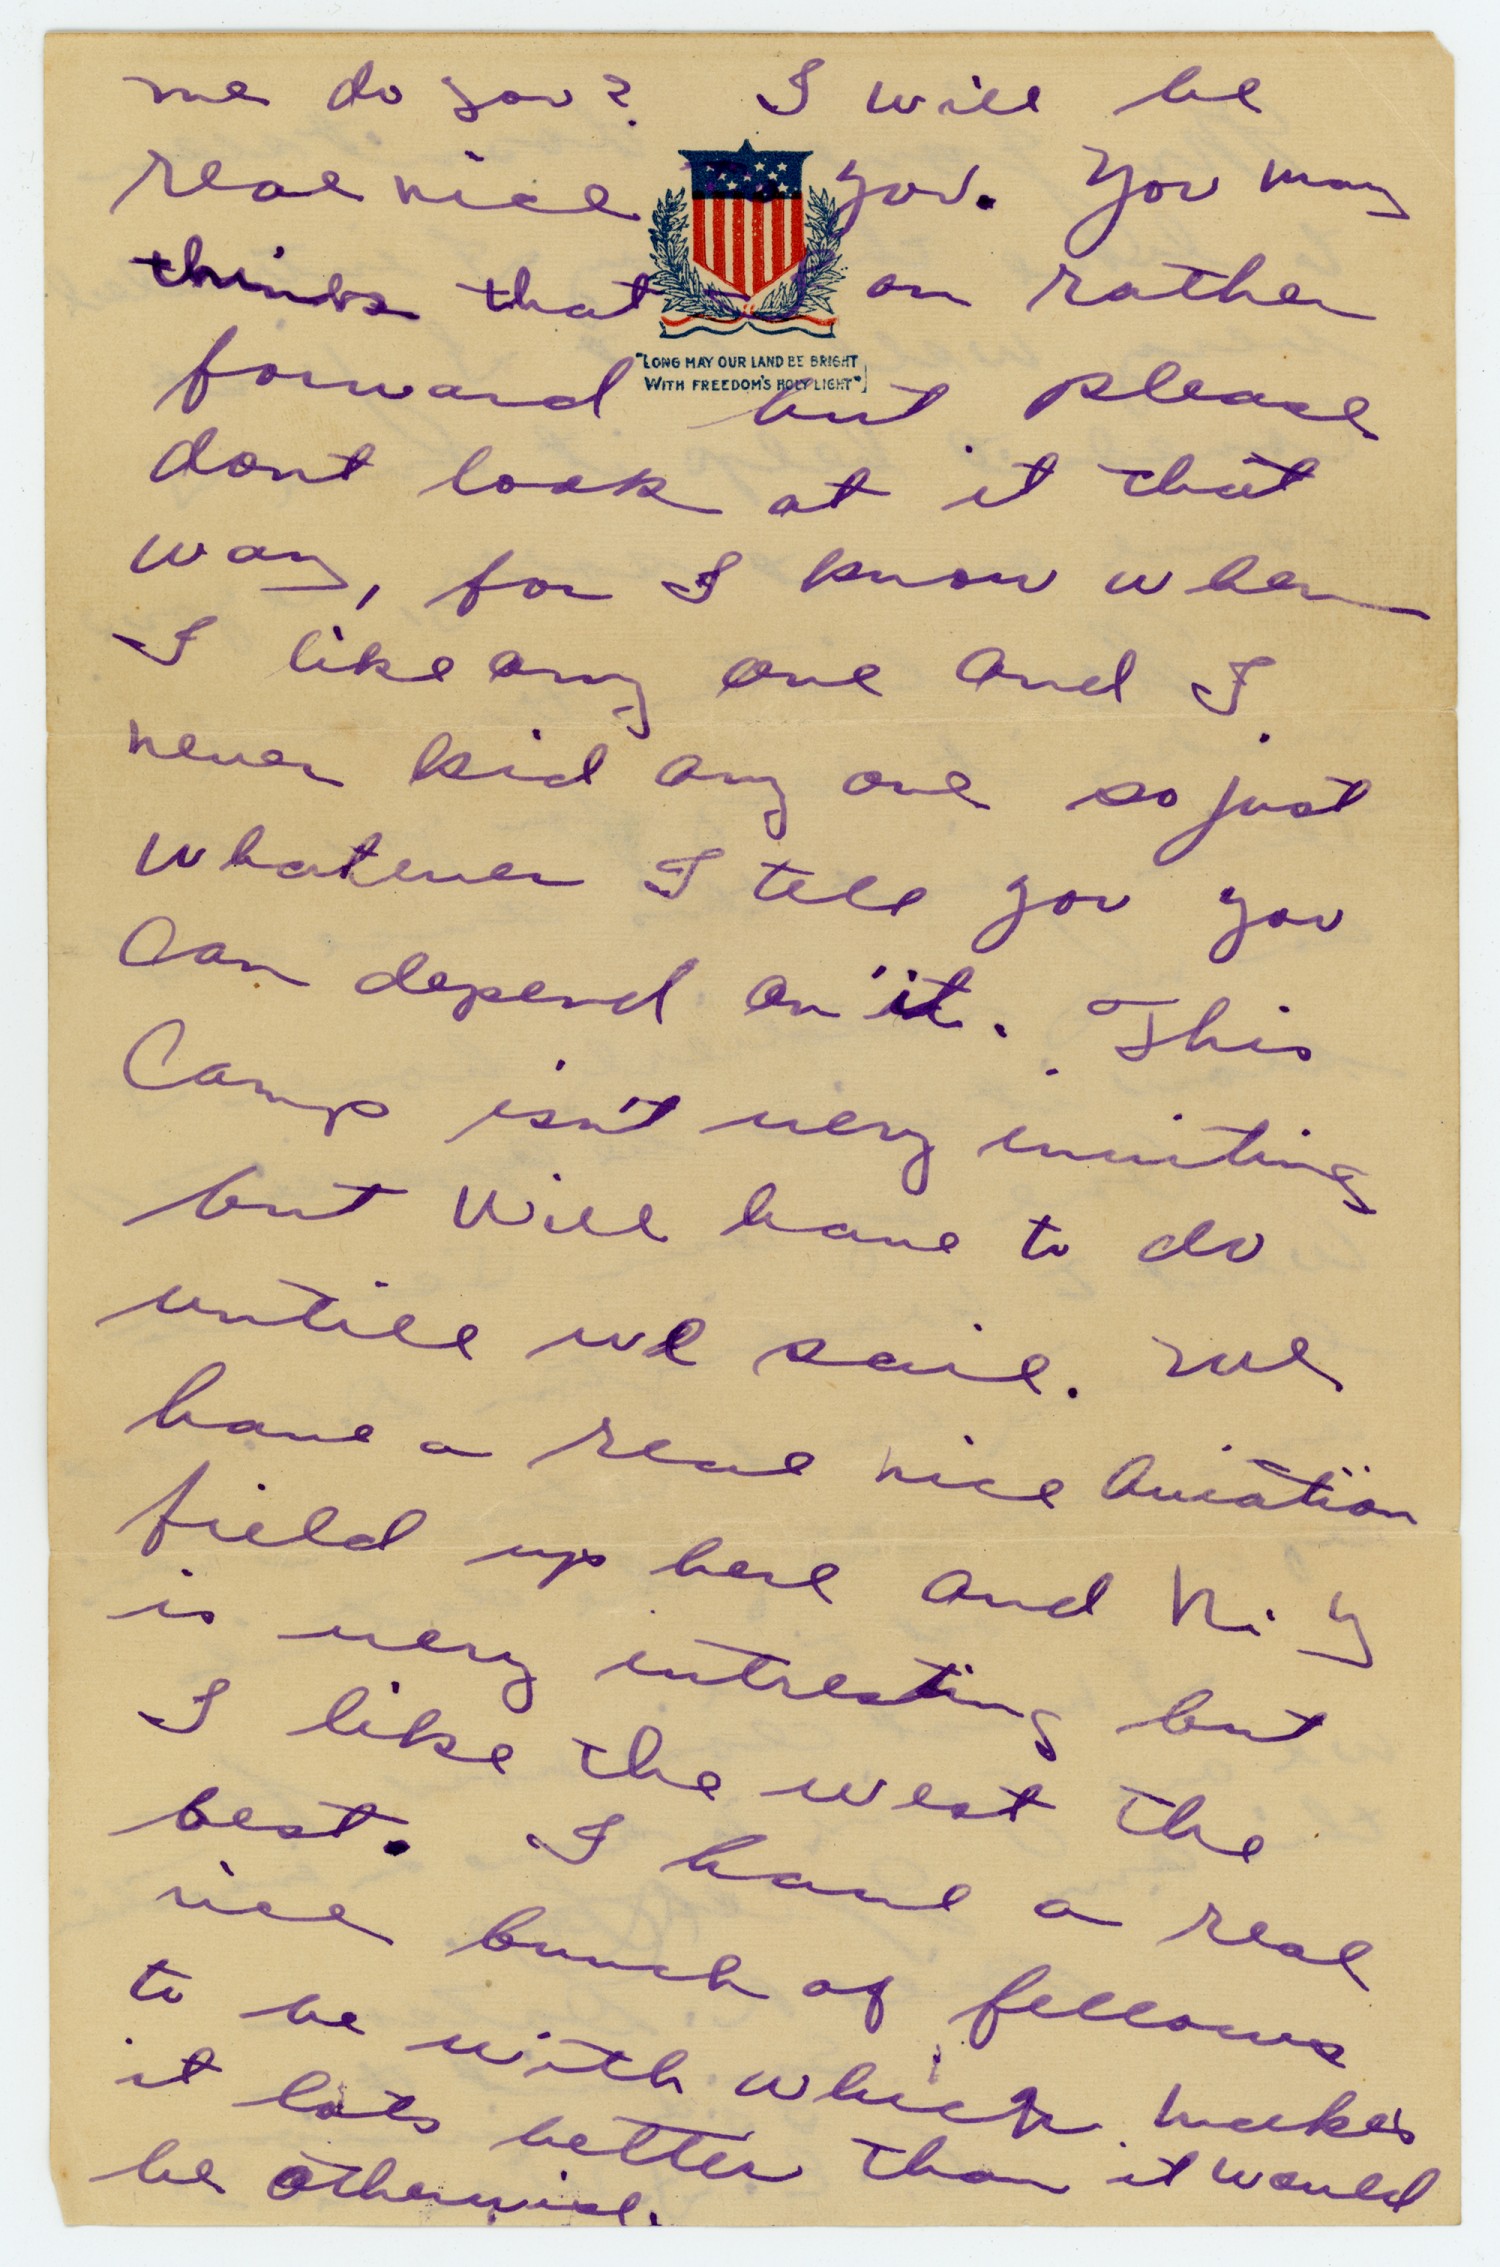 me do you? I will be
real nice to you. You may
think that I am rather
"LONG MAY OUR LAND BE BRIGHT
WITH FREEDOM'S HOLY LIGHT"
forward but please
dont look at it that
way, for I know when
I like any one and I
never kid any one so just
whatever I tell you you
can depend on it. This
Camp isn't very inviting
but will have to do
untill we sail. We
have a real nice Aviation
field up here and N. Y
is very intresting but
I like the west the
best. I have a real
nice bunch of fellows
to be with which makes
it lots better than it would
be otherwise.